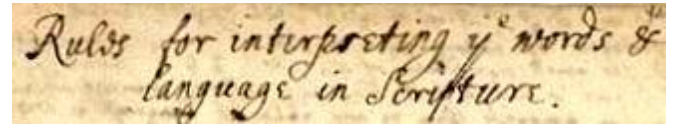 Rules for interpreting yᵉ words &
language in Scripture.